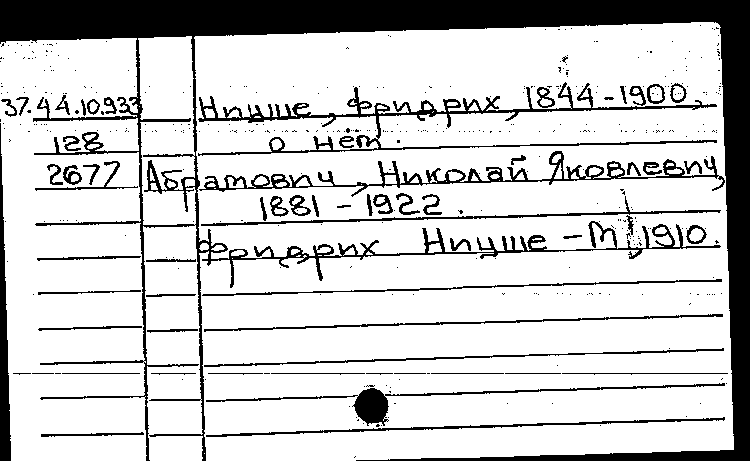 37.44.10.933 Ницше, Фридрих, 1844-1900,
128 о нём.
2677 Абрамович, Николай Яковлевич,
1881 - 1922.
Фридрих Ницше - М., 1910.